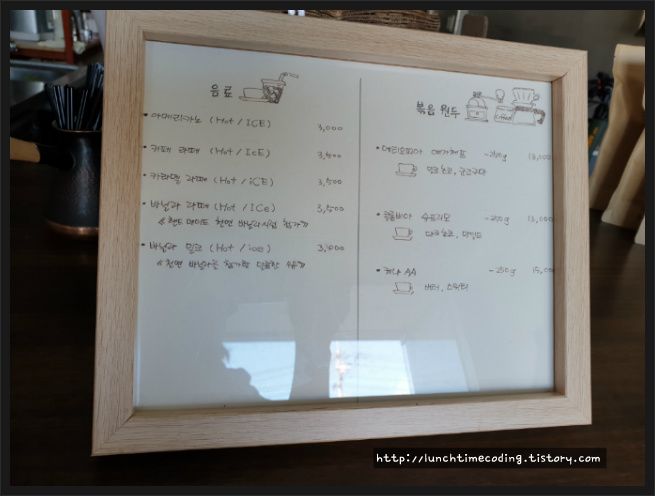 음료
• 아메리카노 (Hot / ICE) 3,000
• 카페 라떼 (Hot / IcE)
• 카라멜 라떼 (Hot / iCE) 3,500
• 바닐라 라떼 (Hot / ICe) 3,500
《핸드메이드 천연 바닐라시럽 첨가》
• 바닐라 밀크 (Hot / ice)
《천연 바닐라를 첨가한 달콤한 우유》
볶음 원두
• 에티오피아 예가체프 -250g 13,000
• 콜롬비아 수프리모 -250g 13,000
• 케냐 AA -250g 15,000
http://lunchtimecoding.tistory.com